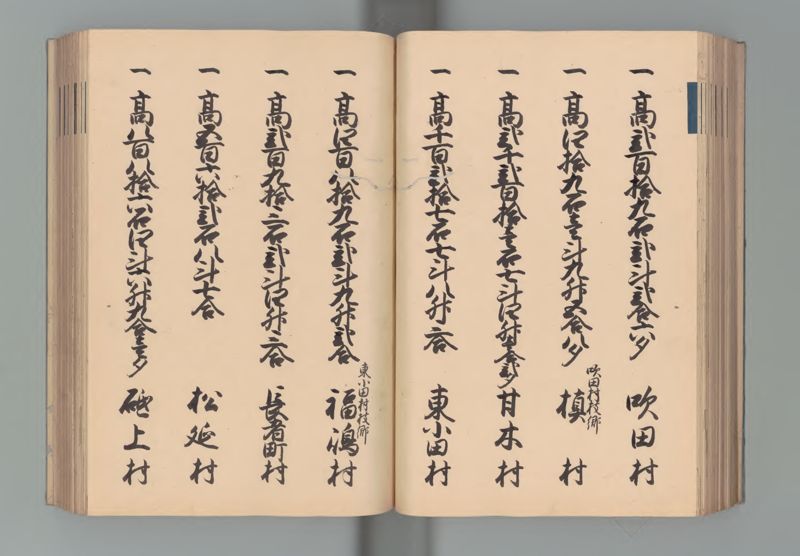 一 高弐百拾九石弐斗弐合六夕 吹田村
一 高四拾九石壱斗九升五合八夕 吹田村枝郷 槙村
一 高弐千弐百拾壱石七斗四升壱合弐夕 甘木村
一 高千百弐拾七石七斗八升二合 東小田村
一 高四百八拾九石弐斗九升弐合 東小田村枝郷 福嶋村
一 高弐百九拾三石弐斗四升三合 長者町村
一 高五百六拾弐石八斗七合 松延村
一 高八百八拾六石四斗八升九合壱夕 砥上村